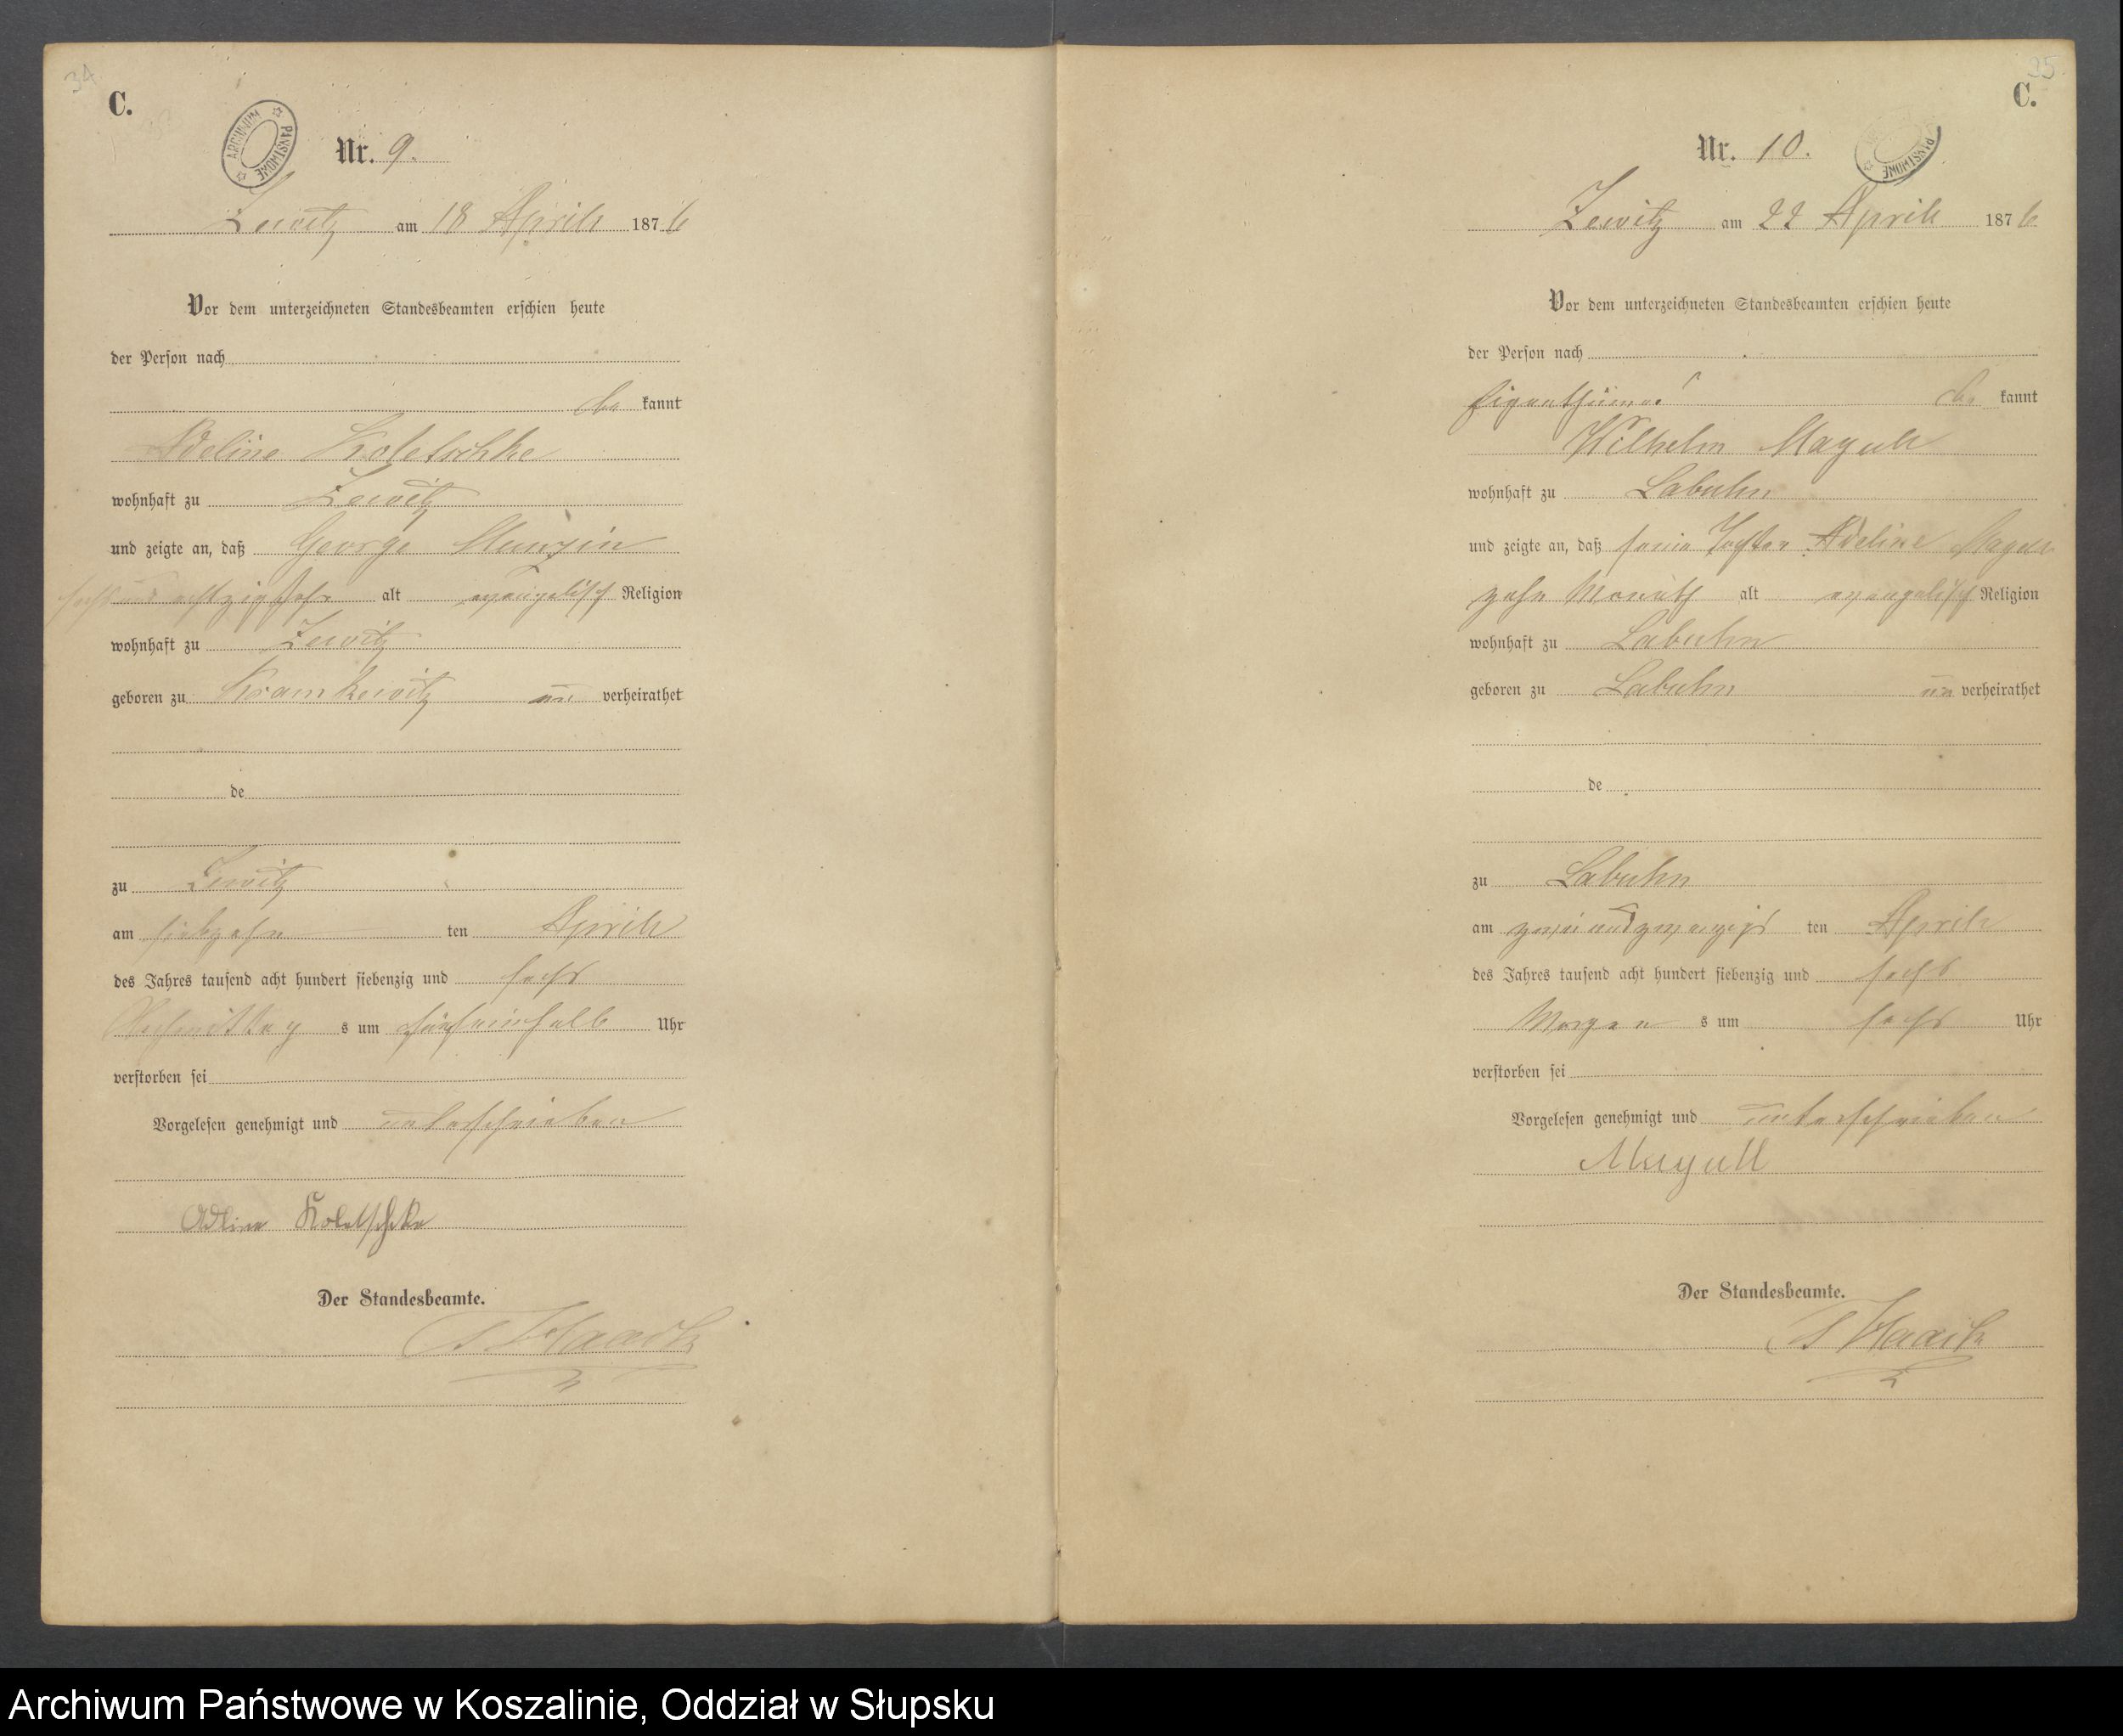 34
C.
ARCHIWUM PAŃSTWOWE
Nr. 9.
Zewitz am 18 Aprill 1876
Vor dem unterzeichneten Standesbeamten erschien heute
der Person nach
be kannt
Adeline Koletschke
wohnhaft zu Zewitz
und zeigte an, daß George
sechs und achtzig Jahr alt evangelisch Religion
wohnhaft zu Zewitz
geboren zu Kramkewitz un verheirathet
de
zu Zewitz
am siebzehn ten Aprill
des Jahres tausend acht hundert siebenzig und sechs
Nachmittag s um Uhr
verstorben sei
Vorgelesen genehmigt und unterschrieben
Adline Koletschke
Der Standesbeamte.
Haack
35
C.
Nr. 10.
PAŃSTWOWE
Zewitz am 22 Aprill 1876
Vor dem unterzeichneten Standesbeamten erschien heute
der Person nach
Eigenthümer be kannt
Wilhelm Magull
wohnhaft zu Labuhn
und zeigte an, daß seine Tochter Adeline Magull
zehn Monath alt evangelisch Religion
wohnhaft zu Labuhn
geboren zu Labuhn un verheirathet
de
zu Labuhn
am zweiundzwanzigs ten Aprill
des Jahres tausend acht hundert siebenzig und sechs
Morgen s um sechs Uhr
verstorben sei
Vorgelesen genehmigt und unterschrieben
Magull
Der Standesbeamte.
Haack
Archiwum Państwowe w Koszalinie, Oddział w Słupsku